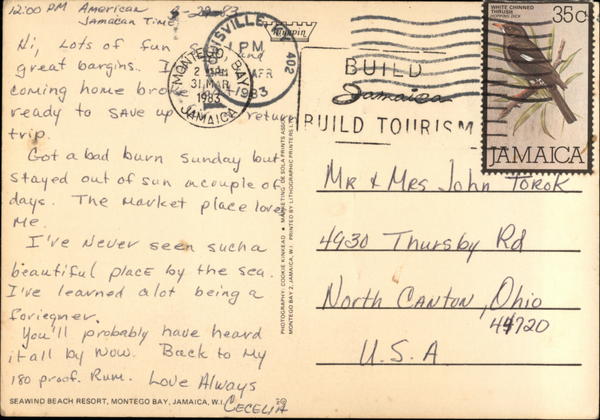 12:00 PM American
Jamaican Time
3-29-83
Hi, Lots of fun and
great bargins. I
coming home broke
ready to save up return
trip.
Got a bad burn Sunday but
stayed out of sun a couple of
days. The market place loves
me.
I've never seen such a
beautiful place by the sea.
I've learned alot being a
foriegner.
You'll probably have heard
it all by now. Back to my
180 proof. Rum. Love Always
Cecelia
SEAWIND BEACH RESORT, MONTEGO BAY, JAMAICA, W.I.
MONTEGO BAY
31 MAR
1983
JAMAICA
PM
APR
1983
402
PHOTOGRAPHY: COOKIE KINKEAD MARKETING: DE SOLA PRINTS ASSOC.
MONTEGO BAY 2, JAMAICA, W.I. PRINTED BY LITHOGRAPHIC PRINTERS
BUILD
Jamaica
BUILD TOURISM
WHITE CHINNED
THRUSH
HOPPING DICK
35c
JAMAICA
Mr & Mrs John Torok
4930 Thursby Rd
North Canton, Ohio
44720
U.S.A.